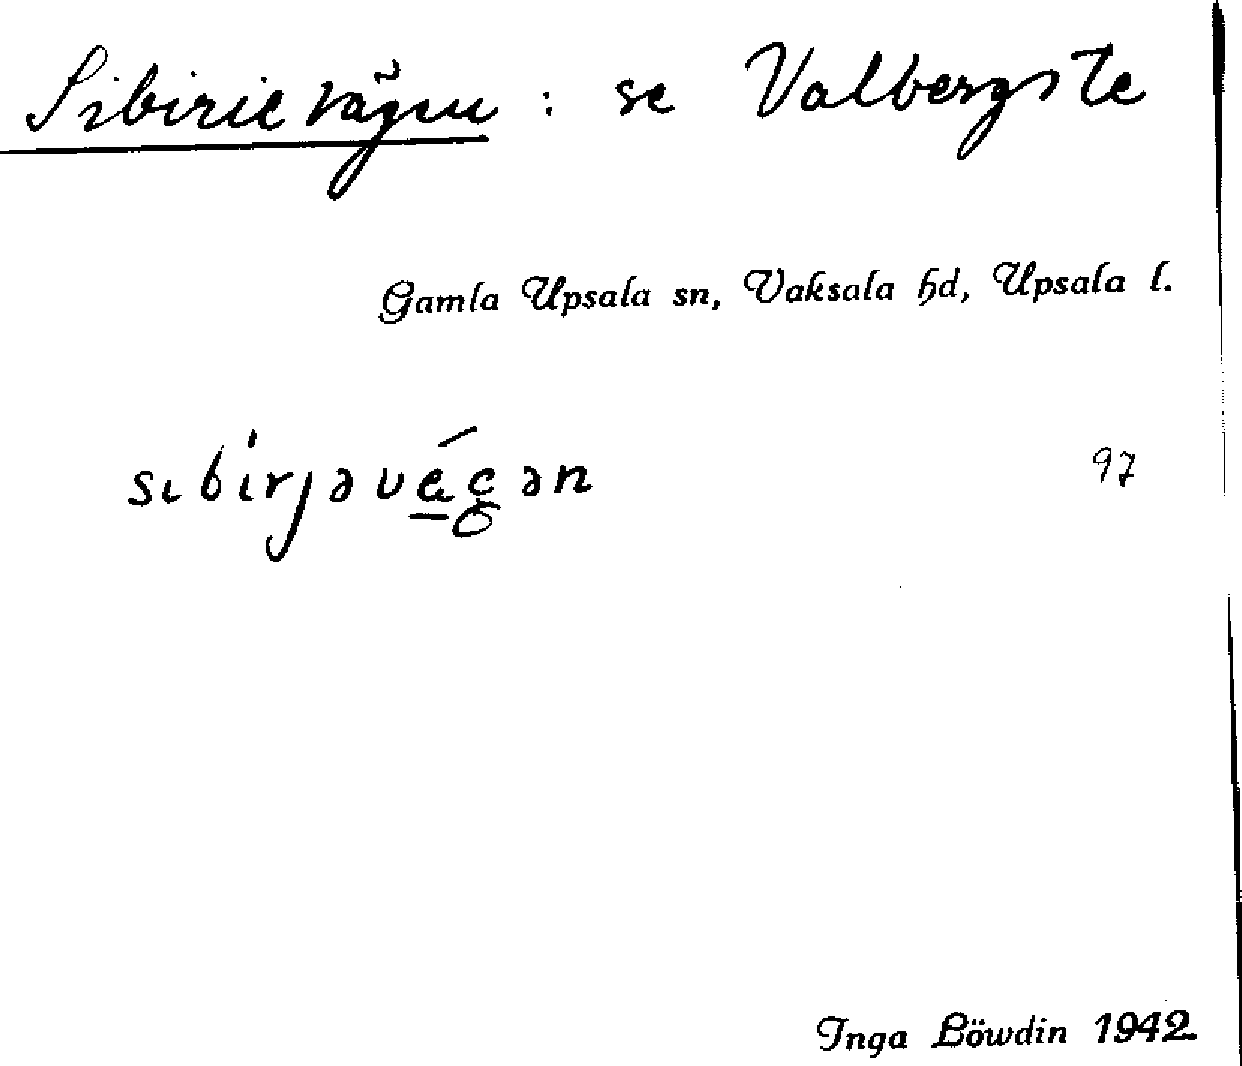 Sibirievägen : se Valbergste
Gamla Upsala sn, Vaksala hd, Upsala l.
sıbírȷəvǽgən 97
Inga Löwdin 1942